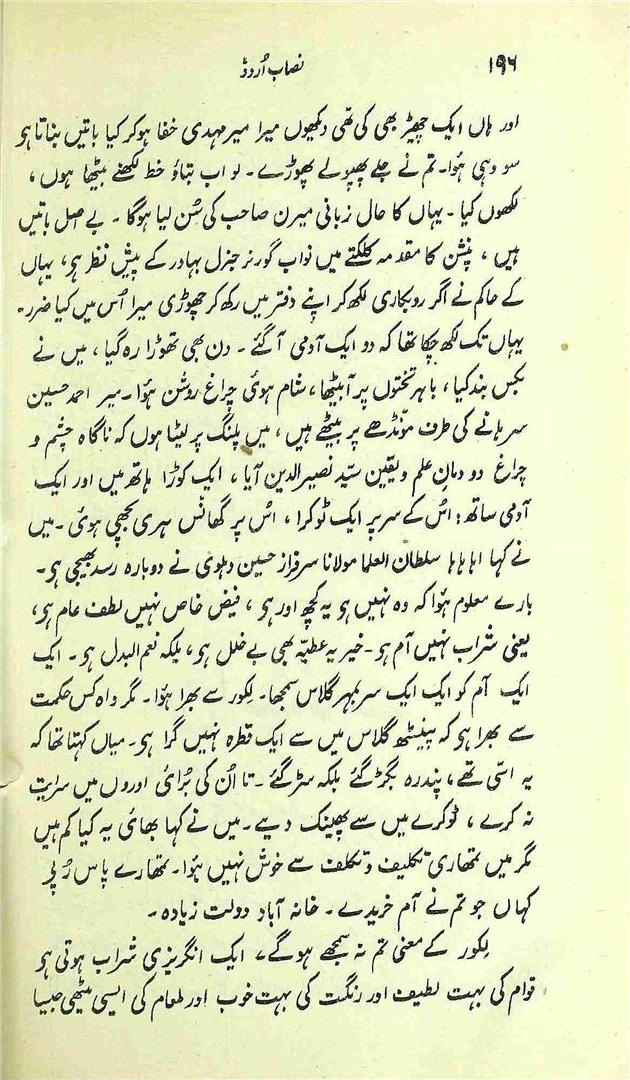 ۱۹۶ نصاب اُردو
اور ہاں ایک چھیڑ بھی کی تھی دیکھوں میرا میر مہدی خفا ہوکر کیا باتیں بناتا ہو
سو وہی ہُوا۔ تم نے جلے پھپھولے پھوڑے۔ لو اب بتاؤ خط لکھنے بیٹھا ہوں،
لکھوں کیا۔ یہاں کا حال زبانی میرن صاحب کی سُن لیا ہوگا۔ بے اصل باتیں
ہیں، پنشن کا مقدمہ کلکتے میں نواب گورنر جنرل بہادر کے پیش نظر ہو، یہاں
کے حاکم نے اگر روبکاری لکھ کر اپنے دفتر میں رکھ کر چھوڑی میرا اُس میں کیا ضرر۔
یہاں تک لکھ چکا تھا کہ دو ایک آدمی آگئے۔ دن بھی تھوڑا رہ گیا، میں نے
بکس بند کیا، باہر تختوں پر آبیٹھا، شام ہوئی چراغ روشن ہُوا۔ میر احمد حسین
سرہانے کی طرف مونڈھے پر بیٹھے ہیں، میں پلنگ پر لیٹا ہوں کہ ناگاہ چشم و
چراغ دودمانِ علم و یقین سیّد نصیر الدین آیا، ایک کوڑا ہاتھ میں اور ایک
آدمی ساتھ؛ اُس کے سر پر ایک ٹوکرا، اُس پر گھانس ہری بچھی ہوئی۔ میں
نے کہا اہاہاہا سلطان العلما مولانا سرفراز حسین دہلوی نے دوبارہ رسد بھیجی ہو۔
بارے معلوم ہُوا کہ وہ نہیں ہو یہ کچھ اور ہو، فیض خاص نہیں لطف عام ہو،
یعنی شراب نہیں آم ہو۔ خیر یہ عطیّہ بھی بے خلل ہو، بلکہ نعم البدل ہو۔ ایک
ایک آم کو ایک ایک سربمہر گلاس سمجھا۔ لِکور سے بھرا ہوا۔ مگر واہ کس حکمت
سے بھرا ہو کہ پینسٹھ گلاس میں سے ایک قطرہ نہیں گرا ہو۔ میاں کہتا تھا کہ
یہ اسّی تھے، پندرہ بگڑ گئے بلکہ سڑ گئے۔ تا اُن کی بُرائی اوروں میں سرایت
نہ کرے، ٹوکرے میں سے پھینک دیے۔ میں نے کہا بھائی یہ کیا کم ہیں
مگر میں تمھاری تکلیف و تکلف سے خوش نہیں ہُوا۔ تمھارے پاس رُپے
کہاں جو تم نے آم خریدے۔ خانہ آباد دولت زیادہ۔
لِکور کے معنی تم نہ سمجھے ہوگے، ایک انگریزی شراب ہوتی ہو
قوام کی بہت لطیف اور رنگت کی بہت خوب اور طعام کی ایسی میٹھی جیسا